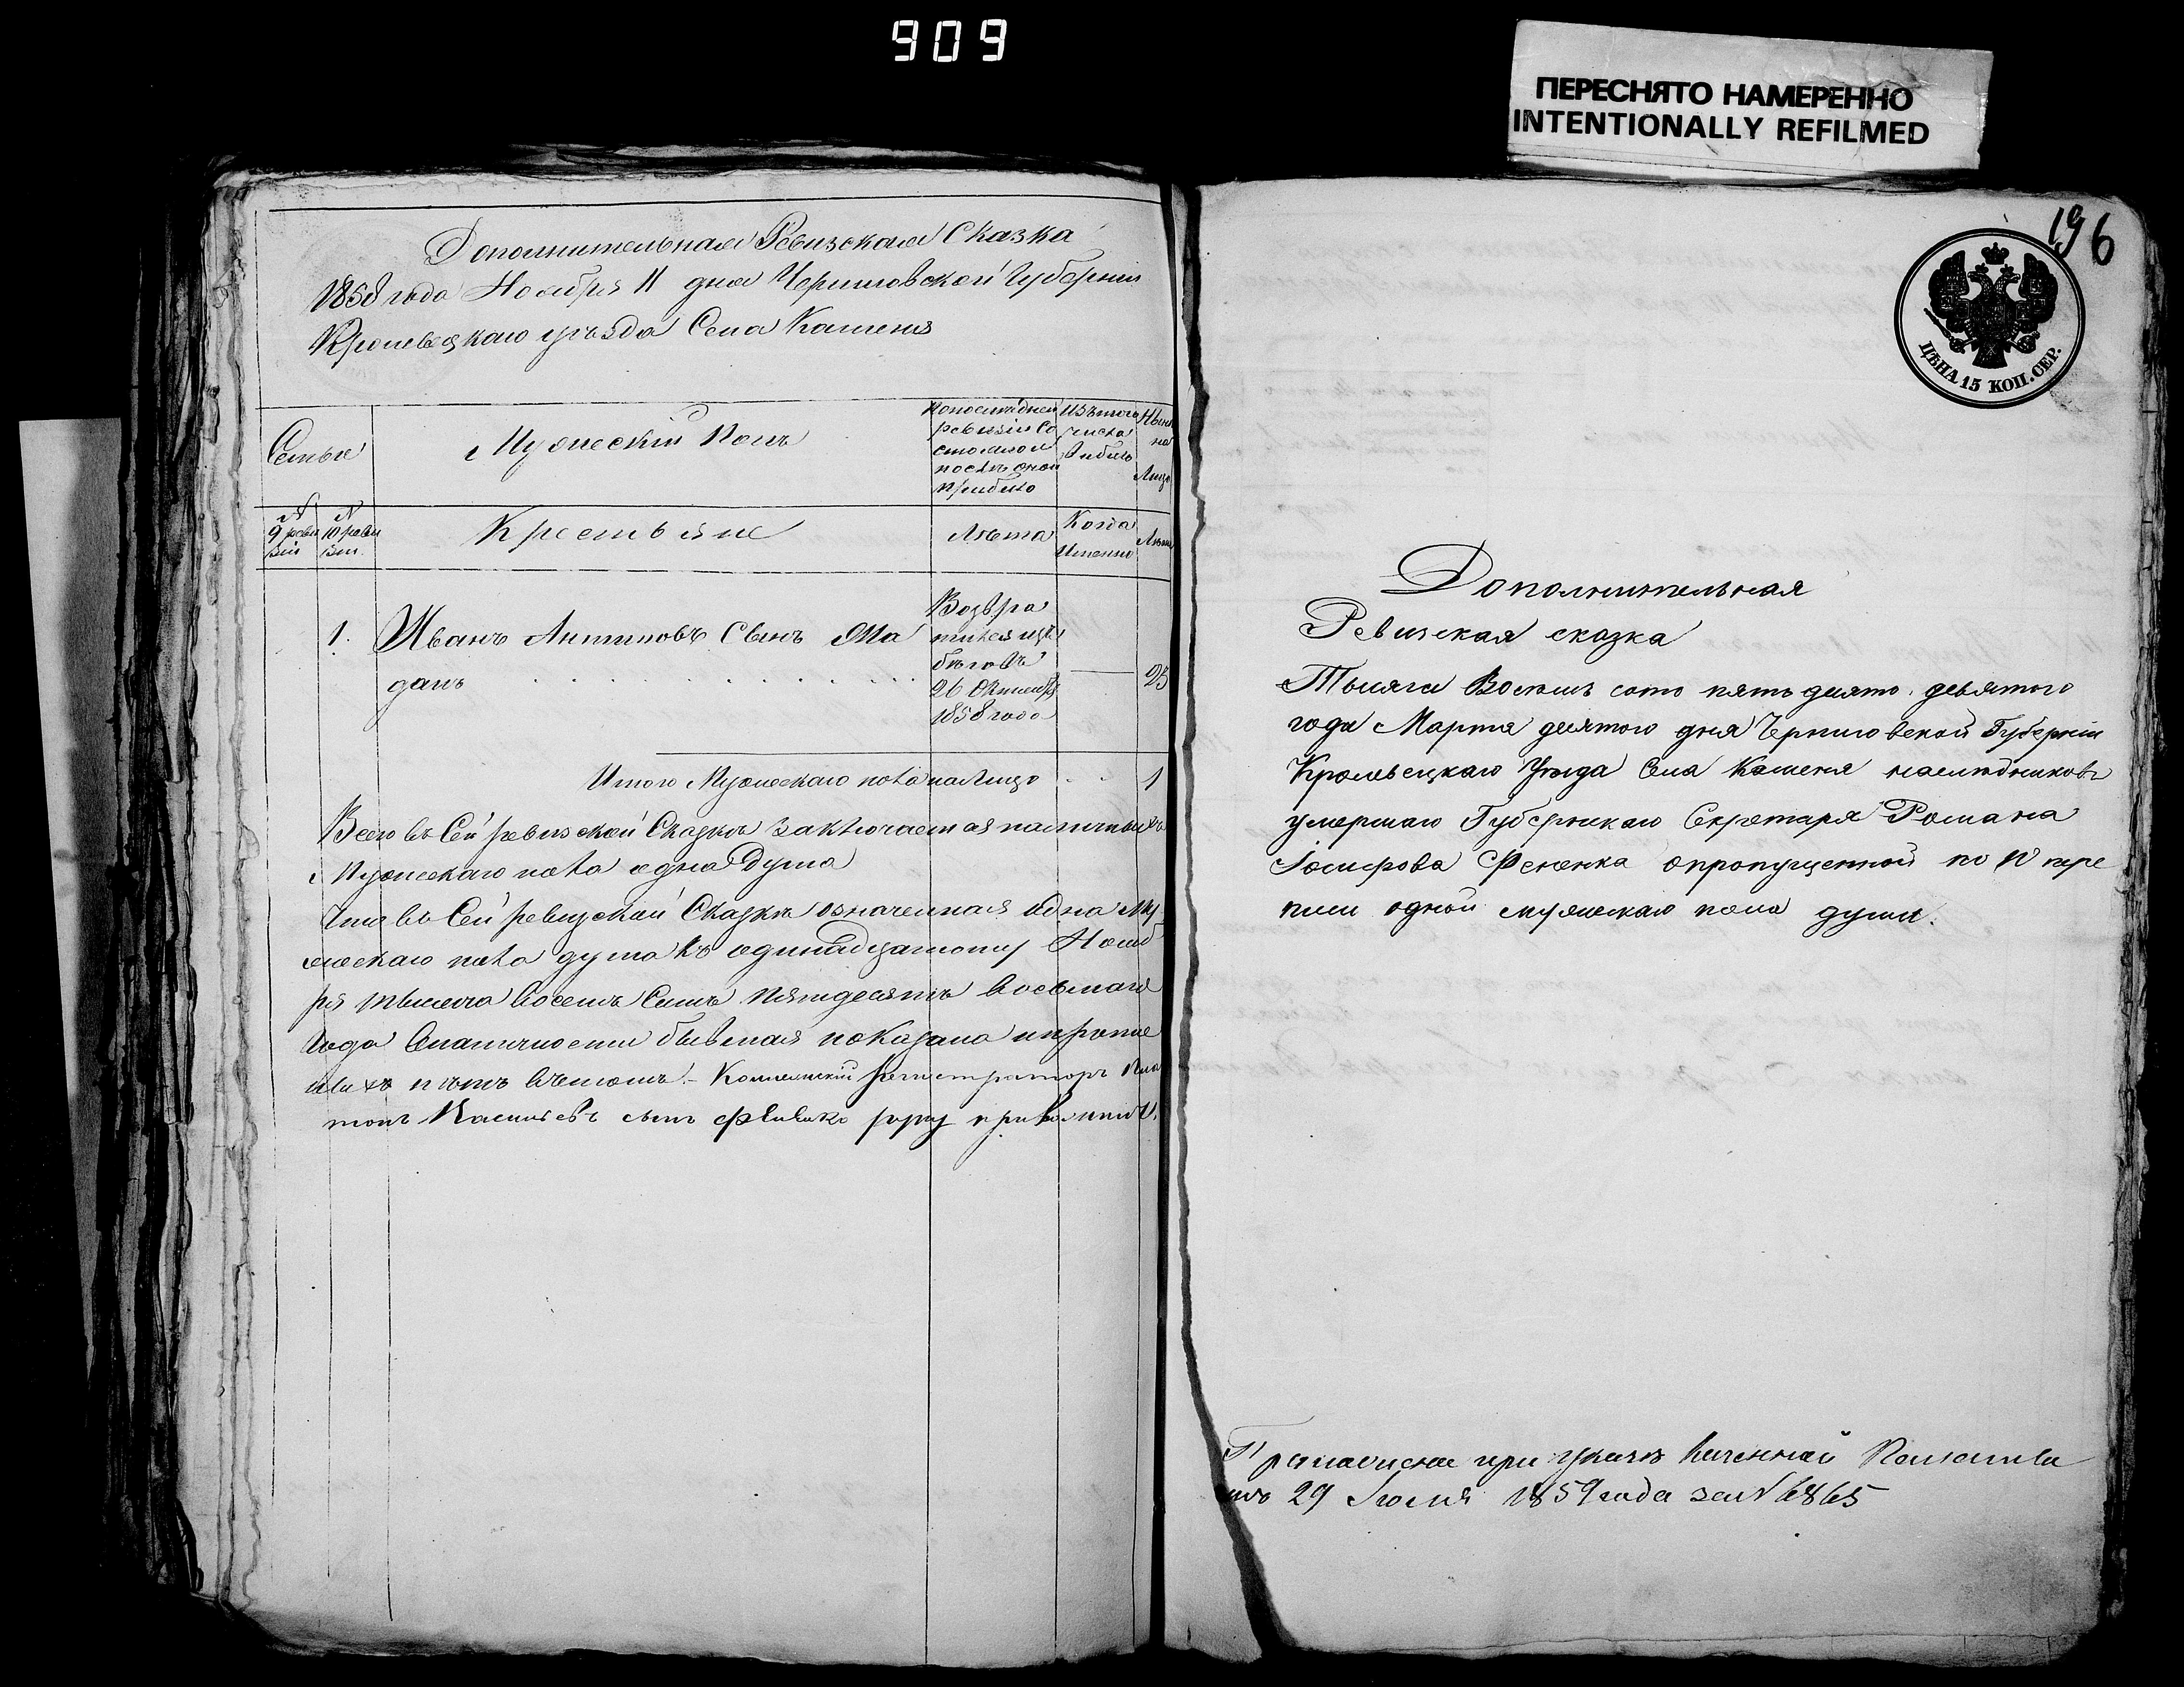 909
ПЕРЕСНЯТО НАМЕРЕННО
INTENTIONALLY REFILMED
Дополнительная Ревизская Сказка
1858 года Ноября 11 дня Черниговской Губерніи
Кролевецкаго уѣзда Села Каменя
Семьи
Мужескій Полъ
По последней ревизіи состояло и после оной прибыло
Изъ того числа выбыло
Ныне на Лицо
№ 9 ревизіи
№ 10 ревизіи
Крестьяне
Лѣта
Когда Именно
Лѣта
1. Иванъ Антиповъ Сынъ Ма
данъ
Возвра
тился изъ
бѣговъ
26 Октября
1858 года
25
Итого Мужескаго пола на Лицо 1
Всего въ Сей ревизской Сказкѣ заключается наличныхъ
Мужескаго пола одна Душа
Что въ Сей ревизской Сказкѣ означенная одна Му
жескаго пола душа къ одинадцатому Нояб
ря тысяча восемь Сотъ пятдесятъ восьмаго
Года Споличности бывшая показана и кроме
ихъ нѣтъ въ томъ. Коллежскій регистраторъ Пла
тонъ сынъ руку приложилъ.
196
ЦѢНА 15 КОП. СЕР.
Дополнительная
Ревизская сказка
Тысяча Восемь сотъ пятьдесятъ девятого
года Марта десятого дня Черниговской Губерніи
Кролевецкаго Уѣзда Села Каменя наследниковъ
умершаго Губернскаго Секретаря Романа
Фененка о пропущенной по 10 пере
писи одной мужескаго пола души.
при указѣ Казенной Палаты
отъ 29 Іюля 1859 года за № 6865